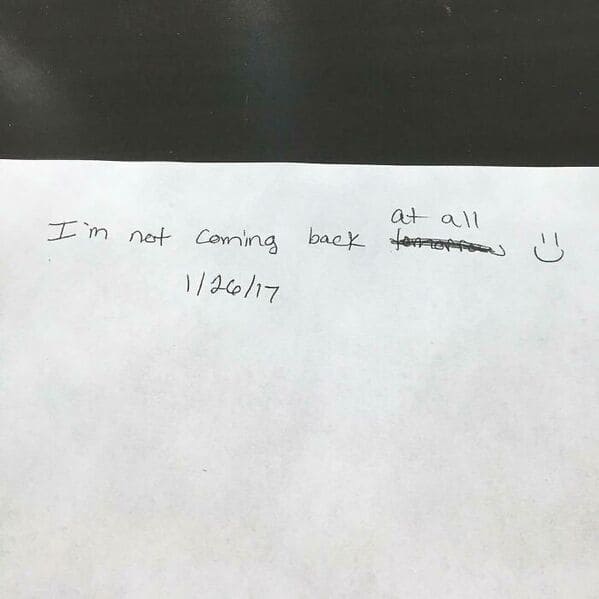 I'm not coming back at all ~~tomorrow~~ :)
1/26/17